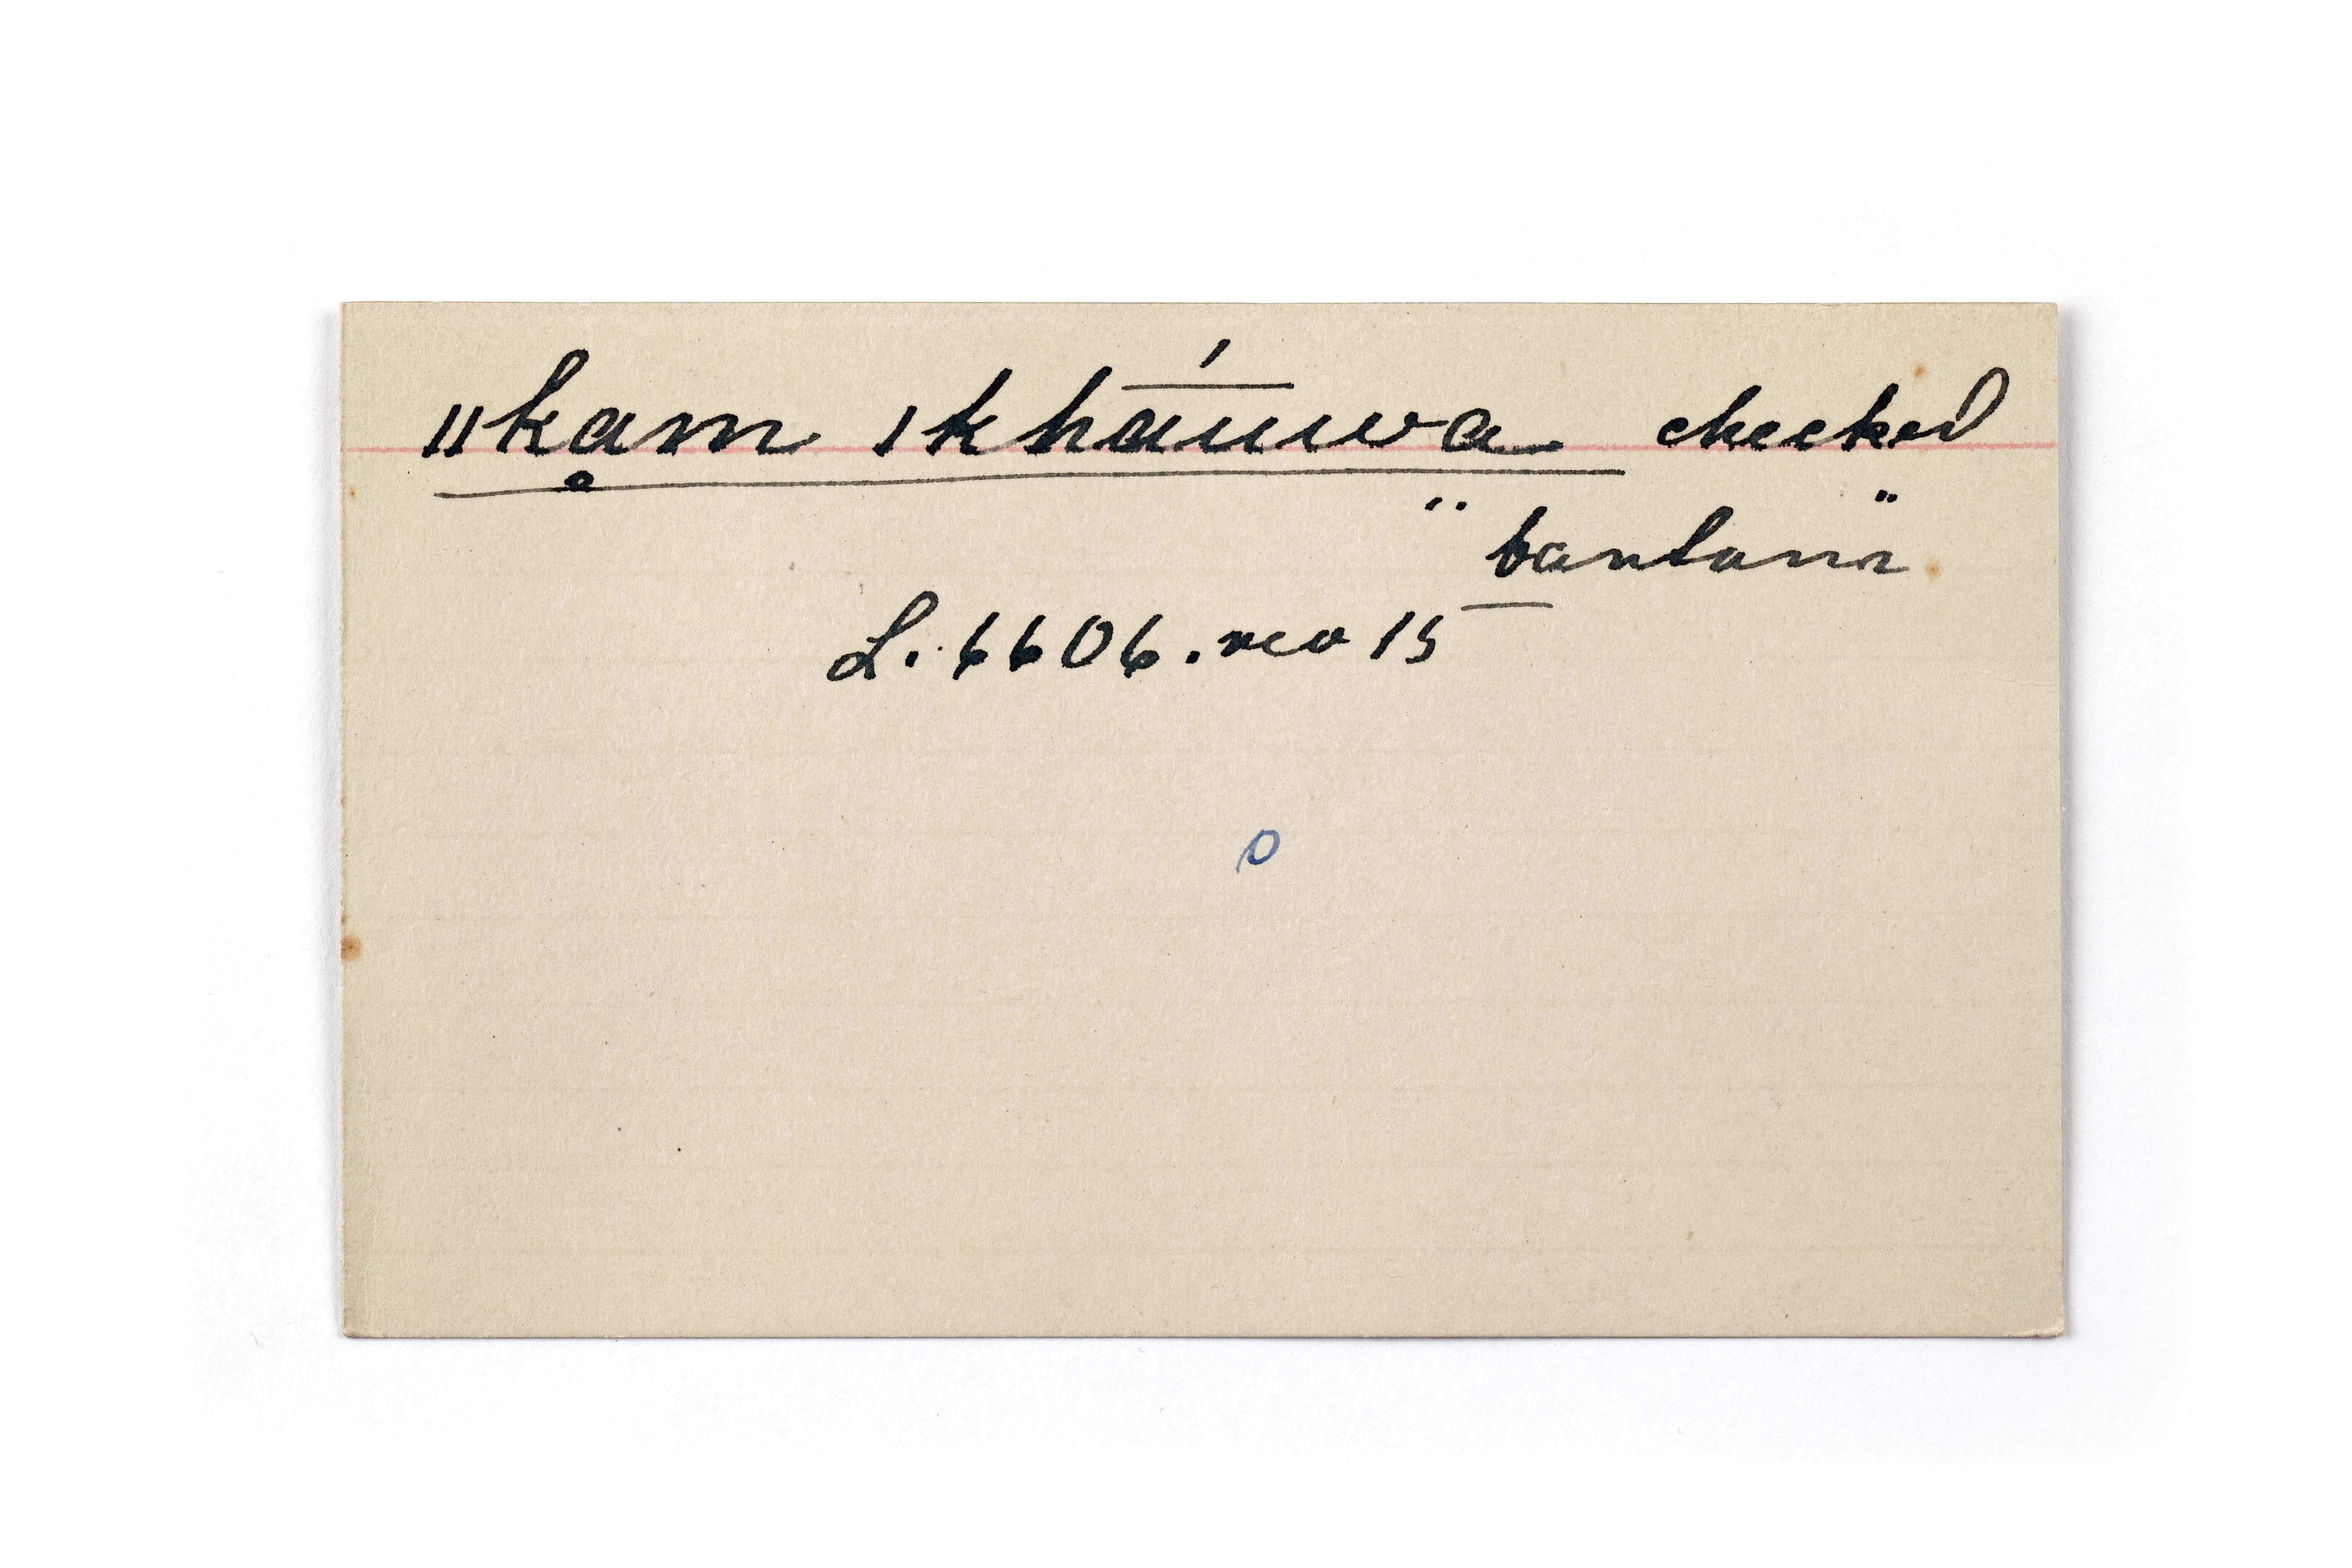 ‖kạm ǀkhauwa checked
¨ bantani ¨
L. 6606. rev 15
0